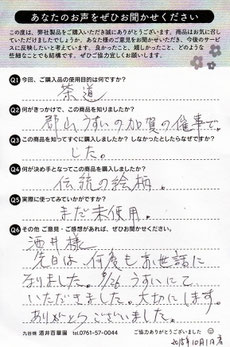 あなたのお声をぜひお聞かせください
この度は、弊社製品をご購入いただき誠にありがとうございます。商品はお気に召して
いただけましたでしょうか。あなた様のご意見をお聞かせいただき、今後のサービ
スに反映したいと考えます。良かったこと、嬉しかったこと、どのような
些細なことでも結構です。ぜひご協力宜しくお願いします。
Q1 今回、ご購入品の使用目的は何ですか?
茶道
Q2 何がきっかけで、この商品を知りましたか?
郡山うすいの加賀の催事で。
Q3 この商品を知ってすぐに購入しましたか? しなかったとしたらなぜですか?
した。
Q4 何が決め手となってこの商品を購入しましたか?
伝統の絵柄。
Q5 実際に使ってみていかがですか?
まだ未使用。
Q6 その他 ご意見・ご感想があれば、ぜひお聞かせください。
酒井様
先日は何度もお世話に
なりました。9/26 うすいにて
いただきました。大切にします。
ありがとうございました。
九谷焼 酒井百華園 tel.0761-57-0044
ご協力ありがとうございました
10月1日着